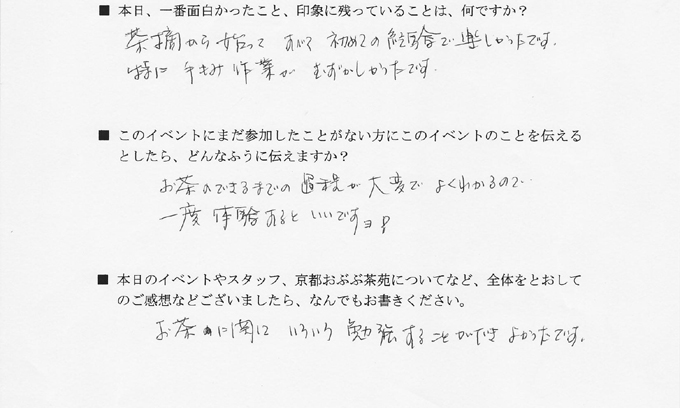 ■ 本日、一番面白かったこと、印象に残っていることは、何ですか？
茶摘から始って すべて 初めての経験で楽しかったです.
特に 手もみ作業が むずかしかったです.
■ このイベントにまだ参加したことがない方にこのイベントのことを伝える
としたら、どんなふうに伝えますか？
お茶のできるまでの 過程が 大変で よくわかるので…
一度 体験すると いいですヨ!
■ 本日のイベントやスタッフ、京都おぶぶ茶苑についてなど、全体をとおして
のご感想などございましたら、なんでもお書きください。
お茶に関に いろいろ 勉強することができ よかったです.